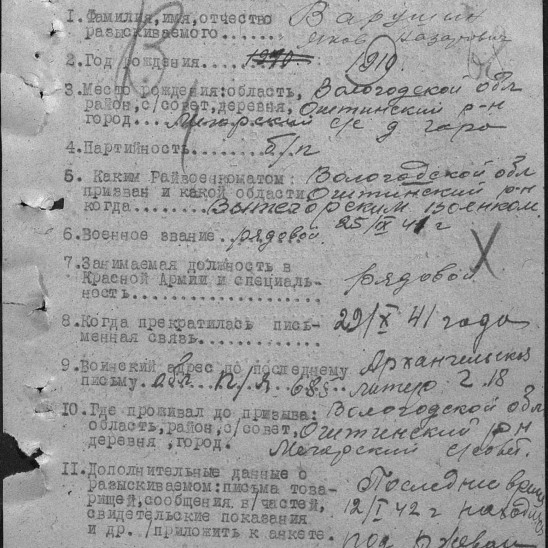 1. Фамилия, имя, отчество Варушин
разыскиваемого....... Яков Назарович
2. Год рождения..... 1910 1919.
3. Место рождения: область, Вологодской обл
район, с/совет, деревня, Оштинский р-н
город... с/с д гора
4. Партийность........ б/п
5. Каким Райвоенкоматом: Вологодской обл
призван и какой области Оштинский р-н
когда....... Вытегорским Военком.
25/IX 41 г
6. Военное звание. рядовой.
7. Занимаемая должность в
Красной Армии и специаль- рядовой
ность....................
8. Когда прекратилась пись- 29/X 41 года
менная связь.............
9. Воинский адрес по последнему Архангельская
письму. обл. п/я 685 литер 2.18
10. Где проживал до призыва: Вологодской обл
область, район, с/совет, Оштинский р-н
деревня, город. с/совет.
11. Дополнительные данные о
разыскиваемом: письма това- Последнее время
рищей, сообщения в/частей, 12/I 42 г находился
свидетельские показания
и др. /приложить к анкете. под Ржевом